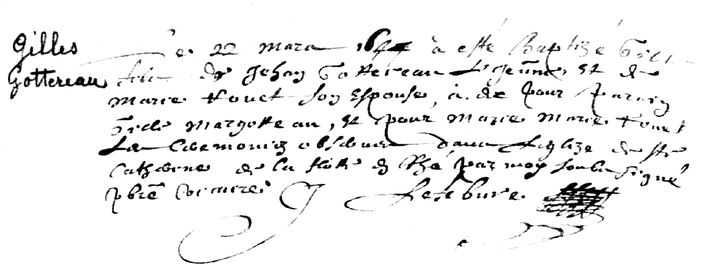 Gilles
Gottereau
Le 22 mars 1644 à esté Baptizé Gilles
fils de Jehan Gottereau le Jeune, et de
Marie touet son espouse, a de pour Parein
Gille Margotteau, et pour Marine Marie touet
Les Ceremonies obser dans L'eglize de ste
Catherine de la flotte en Rhé par moy soubz signé
pbre vicaire J Lefebure